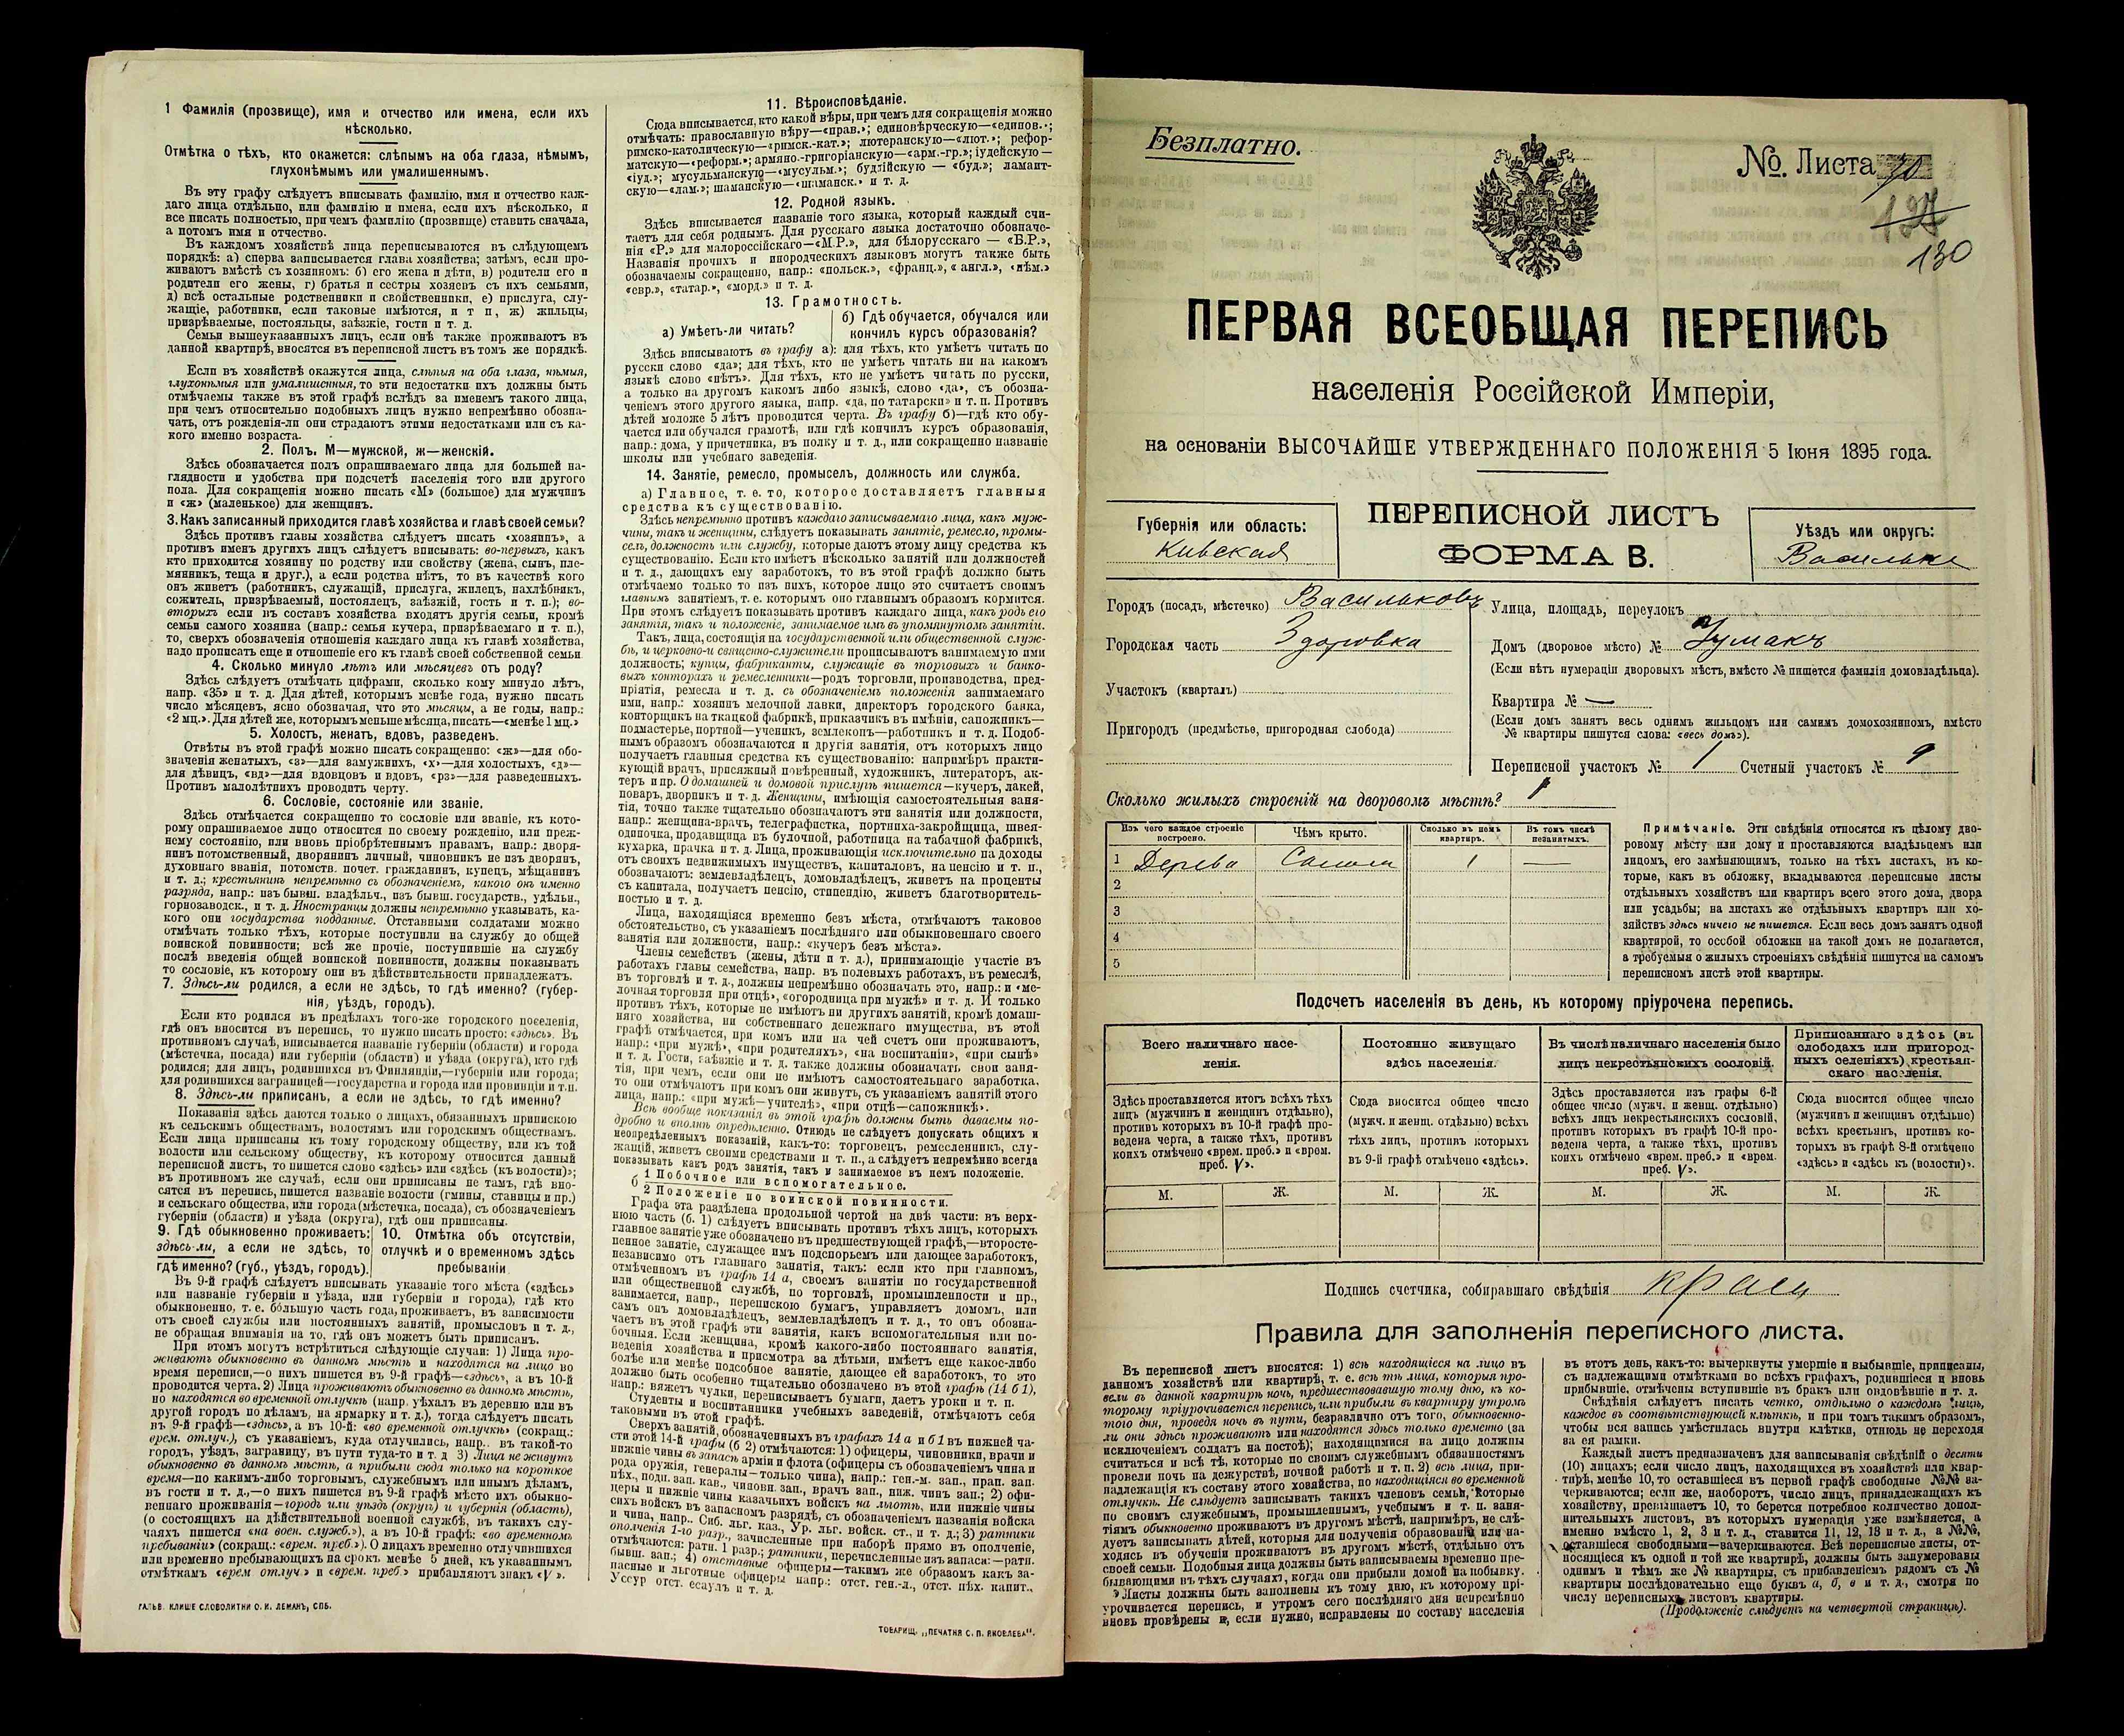 1 Фамилія (прозвище), имя и отчество или имена, если ихъ
нѣсколько.
Отмѣтка о тѣхъ, кто окажется: слѣпымъ на оба глаза, нѣмымъ,
глухонѣмымъ или умалишеннымъ.
Въ эту графу слѣдуетъ вписывать фамилію, имя и отчество каж-
даго лица отдѣльно, или фамилію и имена, если ихъ нѣсколько, и
все писать полностью, при чемъ фамилію (прозвище) ставить сначала,
а потомъ имя и отчество.
Въ каждомъ хозяйствѣ лица переписываются въ слѣдующемъ
порядкѣ: а) сперва записывается глава хозяйства; затѣмъ, если про-
живаютъ вмѣстѣ съ хозяиномъ: б) его жена и дѣти, в) родители его и
родители его жены, г) братья и сестры хозяевъ съ ихъ семьями,
д) всѣ остальные родственники и свойственники, е) прислуга, слу-
жащіе, работники, если таковые имѣются, и т п, ж) жильцы,
призрѣваемые, постояльцы, заѣзжіе, гости и т. д.
Семьи вышеуказанныхъ лицъ, если онѣ также проживаютъ въ
данной квартирѣ, вносятся въ переписной листъ въ томъ же порядкѣ.
Если въ хозяйствѣ окажутся лица, слѣпыя на оба глаза, нѣмыя,
глухонѣмыя или умалишенныя, то эти недостатки ихъ должны быть
отмѣчаемы также въ этой графѣ вслѣдъ за именемъ такого лица,
при чемъ относительно подобныхъ лицъ нужно непремѣнно обозна-
чать, отъ рожденія-ли они страдаютъ этими недостатками или съ ка-
кого именно возраста.
2. Полъ. М—мужской, ж—женскій.
Здѣсь обозначается полъ опрашиваемаго лица для большей на-
глядности и удобства при подсчетѣ населенія того или другого
пола. Для сокращенія можно писать «М» (большое) для мужчинъ
и «ж» (маленькое) для женщинъ.
3. Какъ записанный приходится главѣ хозяйства и главѣ своей семьи?
Здѣсь противъ главы хозяйства слѣдуетъ писать «хозяинъ», а
противъ именъ другихъ лицъ слѣдуетъ вписывать: во-первыхъ, какъ
кто приходится хозяину по родству или свойству (жена, сынъ, пле-
мянникъ, теща и друг.), а если родства нѣтъ, то въ качествѣ кого
онъ живетъ (работникъ, служащій, прислуга, жилецъ, нахлѣбникъ,
сожитель, призрѣваемый, постоялецъ, заѣзжій, гость и т. п.); во-
вторыхъ если въ составъ хозяйства входятъ другія семьи, кромѣ
семьи самого хозяина (напр.: семья кучера, призрѣваемаго и т. п.),
то, сверхъ обозначенія отношенія каждаго лица къ главѣ хозяйства,
надо прописать еще и отношеніе его къ главѣ своей собственной семьи
4. Сколько минуло лѣтъ или мѣсяцевъ отъ роду?
Здѣсь слѣдуетъ отмѣчать цифрами, сколько кому минуло лѣтъ,
напр. «35» и т. д. Для дѣтей, которымъ менѣе года, нужно писать
число мѣсяцевъ, ясно обозначая, что это мѣсяцы, а не годы, напр.:
«2 мц.». Для дѣтей же, которымъ меньше мѣсяца, писать—«менѣе 1 мц.»
5. Холостъ, женатъ, вдовъ, разведенъ.
Отвѣты въ этой графѣ можно писать сокращенно: «ж»—для обо-
значенія женатыхъ, «з»—для замужнихъ, «х»—для холостыхъ, «д»—
для дѣвицъ, «вд»—для вдовцовъ и вдовъ, «рз»—для разведенныхъ.
Противъ малолѣтнихъ проводить черту.
6. Сословіе, состояніе или званіе.
Здѣсь отмѣчается сокращенно то сословіе или званіе, къ кото-
рому опрашиваемое лицо относится по своему рожденію, или преж-
нему состоянію, или вновь пріобрѣтеннымъ правамъ, напр.: дворя-
нинъ потомственный, дворянинъ личный, чиновникъ не изъ дворянъ,
духовнаго званія, потомств. почет. гражданинъ, купецъ, мѣщанинъ
и т. д.; крестьянинъ непремѣнно съ обозначеніемъ, какого онъ именно
разряда, напр.: изъ бывш. владѣльч., изъ бывш. государств., удѣльн.,
горнозаводск., и т. д. Иностранцы должны непремѣнно указывать, ка-
кого они государства подданные. Отставными солдатами можно
отмѣчать только тѣхъ, которые поступили на службу до общей
воинской повинности; всѣ же прочіе, поступившіе на службу
послѣ введенія общей воинской повинности, должны показывать
то сословіе, къ которому они въ дѣйствительности принадлежатъ.
7. Здѣсь-ли родился, а если не здѣсь, то гдѣ именно? (губер-
нія, уѣздъ, городъ).
Если кто родился въ предѣлахъ того-же городского поселенія,
гдѣ онъ вносится въ перепись, то нужно писать просто: «здѣсь». Въ
противномъ случаѣ, вписывается названіе губерніи (области) и города
(мѣстечка, посада) или губерніи (области) и уѣзда (округа), кто гдѣ
родился; для лицъ, родившихся въ Финляндіи,—губерніи или города;
для родившихся заграницей—государства и города или провинціи и т.п.
8. Здѣсь-ли приписанъ, а если не здѣсь, то гдѣ именно?
Показанія здѣсь даются только о лицахъ, обязанныхъ припискою
къ сельскимъ обществамъ, волостямъ или городскимъ обществамъ.
Если лица приписаны къ тому городскому обществу, или къ той
волости или сельскому обществу, къ которому относится данный
переписной листъ, то пишется слово «здѣсь» или «здѣсь (къ волости)»;
въ противномъ же случаѣ, если они приписаны не тамъ, гдѣ вно-
сятся въ перепись, пишется названіе волости (гмины, станицы и пр.)
и сельскаго общества, или города (мѣстечка, посада), съ обозначеніемъ
губерніи (области) и уѣзда (округа), гдѣ они приписаны.
9. Гдѣ обыкновенно проживаетъ:
здѣсь-ли, а если не здѣсь, то
гдѣ именно? (губ., уѣздъ, городъ).
10. Отмѣтка объ отсутствіи,
отлучкѣ и о временномъ здѣсь
пребываніи
Въ 9-й графѣ слѣдуетъ вписывать указаніе того мѣста («здѣсь»
или названіе губерніи и уѣзда, или губерніи и города), гдѣ кто
обыкновенно, т. е. бо́льшую часть года, проживаетъ, въ зависимости
отъ своей службы или постоянныхъ занятій, промысловъ и т. д.,
не обращая вниманія на то, гдѣ онъ можетъ быть приписанъ.
При этомъ могутъ встрѣтиться слѣдующіе случаи: 1) Лица про-
живаютъ обыкновенно въ данномъ мѣстѣ и находятся на лицо во
время переписи,—о нихъ пишется въ 9-й графѣ—«здѣсь», а въ 10-й
проводится черта. 2) Лица проживаютъ обыкновенно въ данномъ мѣстѣ,
но находятся во временной отлучкѣ (напр. уѣхалъ въ деревню или въ
другой городъ по дѣламъ, на ярмарку и т. д.), тогда слѣдуетъ писать
въ 9-й графѣ—«здѣсь», а въ 10-й: «во временной отлучкѣ» (сокращ.:
врем. отлуч.), съ указаніемъ, куда отлучились, напр.. въ такой-то
городъ, уѣздъ, заграницу, въ пути туда-то и т. д 3) Лица не живутъ
обыкновенно въ данномъ мѣстѣ, а прибыли сюда только на короткое
время—по какимъ-либо торговымъ, служебнымъ или инымъ дѣламъ,
въ гости и т. д.,—о нихъ пишется въ 9-й графѣ мѣсто ихъ обыкно-
веннаго проживанія—городъ или уѣздъ (округъ) и губернія (область),
(о состоящихъ на дѣйствительной военной службѣ, въ такихъ слу-
чаяхъ пишется «на воен. службѣ»), а въ 10-й графѣ: «во временномъ
пребываніи» (сокращ.: «врем. преб.»). О лицахъ временно отлучившихся
или временно пребывающихъ на срокъ менѣе 5 дней, къ указаннымъ
отмѣткамъ «врем отлуч.» и «врем. преб.» прибавляютъ знакъ «V».
ГАЛЬВ. КЛИШЕ СЛОВОЛИТНИ О. И. ЛЕМАНЪ, СПБ.
11. Вѣроисповѣданіе.
Сюда вписывается, кто какой вѣры, при чемъ для сокращенія можно
отмѣчать: православную вѣру—«прав.»; единовѣрческую—«единов.»;
римско-католическую—«римск.-кат.»; лютеранскую—«лют.»; рефор-
матскую—«реформ.»; армяно.-григоріанскую—«арм.-гр.»; іудейскую—
«іуд.»; мусульманскую—«мусульм.»; буддійскую — «буд.»; ламаит-
скую—«лам.»; шаманскую—«шаманск.» и т. д.
12. Родной языкъ.
Здѣсь вписывается названіе того языка, который каждый счи-
таетъ для себя роднымъ. Для русскаго языка достаточно обозначе-
нія «Р.» для малороссійскаго—«М.Р.», для бѣлорусскаго — «Б.Р.»,
Названія прочихъ и инородческихъ языковъ могутъ также быть
обозначаемы сокращенно, напр.: «польск.», «франц.», «англ.», «нѣм.»
«евр.», «татар.», «морд.» и т. д.
13. Грамотность.
а) Умѣетъ-ли читать?
б) Гдѣ обучается, обучался или
кончилъ курсъ образованія?
Здѣсь вписываютъ въ графу а): для тѣхъ, кто умѣетъ читать по
русски слово «да»; для тѣхъ, кто не умѣетъ читать ни на какомъ
языкѣ слово «нѣтъ». Для тѣхъ, кто не умѣетъ читать по русски,
а только на другомъ какомъ либо языкѣ, слово «да», съ обозна-
ченіемъ этого другого языка, напр. «да, по татарски» и т. п. Противъ
дѣтей моложе 5 лѣтъ проводится черта. Въ графу б)—гдѣ кто обу-
чается или обучался грамотѣ, или гдѣ кончилъ курсъ образованія,
напр.: дома, у причетника, въ полку и т. д., или сокращенно названіе
школы или учебнаго заведенія.
14. Занятіе, ремесло, промыселъ, должность или служба.
а) Главное, т. е. то, которое доставляетъ главныя
средства къ существованію.
Здѣсь непремѣнно противъ каждаго записываемаго лица, какъ муж-
чины, такъ и женщины, слѣдуетъ показывать занятіе, ремесло, промы-
селъ, должность или службу, которые даютъ этому лицу средства къ
существованію. Если кто имѣетъ нѣсколько занятій или должностей
и т. д., дающихъ ему заработокъ, то въ этой графѣ должно быть
отмѣчаемо только то изъ нихъ, которое лицо это считаетъ своимъ
главнымъ занятіемъ, т. е. которымъ оно главнымъ образомъ кормится.
При этомъ слѣдуетъ показывать противъ каждаго лица, какъ родъ его
занятія, такъ и положеніе, занимаемое имъ въ упомянутомъ занятіи.
Такъ, лица, состоящія на государственной или общественной служ-
бѣ, и церковно-и священно-служители прописываютъ занимаемую ими
должность; купцы, фабриканты, служащіе въ торговыхъ и банко-
выхъ конторахъ и ремесленники—родъ торговли, производства, пред-
пріятія, ремесла и т. д. съ обозначеніемъ положенія занимаемаго
ими, напр.: хозяинъ мелочной лавки, директоръ городского банка,
конторщикъ на ткацкой фабрикѣ, приказчикъ въ имѣніи, сапожникъ—
подмастерье, портной—ученикъ, землекопъ—работникъ и т. д. Подоб-
нымъ образомъ обозначаются и другія занятія, отъ которыхъ лицо
получаетъ главныя средства къ существованію: напримѣръ практи-
кующій врачъ, присяжный повѣренный, художникъ, литераторъ, ак-
теръ и пр. О домашней и домовой прислугѣ пишется—кучеръ, лакей,
поваръ, дворникъ и т. д. Женщины, имѣющія самостоятельныя заня-
тія, точно также тщательно обозначаютъ эти занятія или должности,
напр.: женщина-врачъ, телеграфистка, портниха-закройщица, швея-
одиночка, продавщица въ булочной, работница на табачной фабрикѣ,
кухарка, прачка и т. д. Лица, проживающія исключительно на доходы
отъ своихъ недвижимыхъ имуществъ, капиталовъ, на пенсію и т. п.,
обозначаютъ: землевладѣлецъ, домовладѣлецъ, живетъ на проценты
съ капитала, получаетъ пенсію, стипендію, живетъ благотворитель-
ностью и т. д.
Лица, находящіяся временно безъ мѣста, отмѣчаютъ таковое
обстоятельство, съ указаніемъ послѣдняго или обыкновеннаго своего
занятія или должности, напр.: «кучеръ безъ мѣста».
Члены семействъ (жены, дѣти и т. д.), принимающіе участіе въ
работахъ главы семейства, напр. въ полевыхъ работахъ, въ ремеслѣ,
въ торговлѣ и т. д., должны непремѣнно обозначать это, напр.: и «ме-
лочная торговля при отцѣ», «огородница при мужѣ» и т. д. И только
противъ тѣхъ, которые не имѣютъ ни другихъ занятій, кромѣ домаш-
няго хозяйства, ни собственнаго денежнаго имущества, въ этой
графѣ отмѣчается, при комъ или на чей счетъ они проживаютъ,
напр.: «при мужѣ», «при родителяхъ», «на воспитаніи», «при сынѣ»
и т. д. Гости, заѣзжіе и т. д. также должны обозначать свои заня-
тія, при чемъ, если они не имѣютъ самостоятельнаго заработка,
то они отмѣчаютъ при комъ они живутъ, съ указаніемъ занятій этого
лица, напр.: «при мужѣ—учителѣ», «при отцѣ—сапожникѣ».
Всѣ вообще показанія въ этой графѣ должны быть даваемы по-
дробно и вполнѣ опредѣленно. Отнюдь не слѣдуетъ допускать общихъ и
неопредѣленныхъ показаній, какъ-то: торговецъ, ремесленникъ, слу-
жащій, живетъ своими средствами и т. п., а слѣдуетъ непремѣнно всегда
показывать какъ родъ занятія, такъ и занимаемое въ немъ положеніе.
б 1 Побочное или вспомогательное.
2 Положеніе по воинской повинности.
Графа эта раздѣлена продольной чертой на двѣ части: въ верх-
нюю часть (б. 1) слѣдуетъ вписывать противъ тѣхъ лицъ, которыхъ
главное занятіе уже обозначено въ предшествующей графѣ,—второсте-
пенное занятіе, служащее имъ подспорьемъ или дающее заработокъ,
независимо отъ главнаго занятія, такъ: если кто при главномъ,
отмѣченномъ въ графѣ 14 а, своемъ занятіи по государственной
или общественной службѣ, по торговлѣ, промышленности и пр.,
занимается, напр., перепискою бумагъ, управляетъ домомъ, или
самъ онъ домовладѣлецъ, землевладѣлецъ и т. д., то онъ обозна-
чаетъ въ этой графѣ эти занятія, какъ вспомогательныя или по-
бочныя. Если женщина, кромѣ какого-либо постояннаго занятія,
веденія хозяйства и присмотра за дѣтьми, имѣетъ еще какое-либо
болѣе или менѣе подсобное занятіе, дающее ей заработокъ, то это
должно быть особенно тщательно обозначено въ этой графѣ (14 б 1),
напр.: вяжетъ чулки, переписываетъ бумаги, даетъ уроки и т. п.
Студенты и воспитанники учебныхъ заведеній, отмѣчаютъ себя
таковыми въ этой графѣ.
Сверхъ занятій, обозначенныхъ въ графахъ 14 а и б 1 въ нижней ча-
сти этой 14-й графы (б 2) отмѣчаются: 1) офицеры, чиновники, врачи и
нижніе чины въ запасѣ арміи и флота (офицеры съ обозначеніемъ чина и
рода оружія, генералы—только чина), напр.: ген-м. зап., прап. зап.
пѣх., подп. зап. кав., чиновн. зап., врачъ зап., ниж. чинъ зап.; 2) офи-
церы и нижніе чины казачьихъ войскъ на льготѣ, или нижніе чины
сихъ войскъ въ запасномъ разрядѣ, съ обозначеніемъ названія войска
и чина, напр.. Сиб. льг. каз., Ур. льг. войск. ст., и т. д.; 3) ратники
ополченія 1-го разр., зачисленные при наборѣ прямо въ ополченіе,
отмѣчаются: ратн. 1 разр.; ратники, перечисленные изъ запаса:—ратн.
бывш. зап.; 4) отставные офицеры—такимъ же образомъ какъ за-
пасные и льготные офицеры напр.: отст. ген.-л., отст. пѣх. капит.,
Уссур отст. есаулъ и т. д.
ТОВАРИЩ. „ПЕЧАТНЯ С. П. ЯКОВЛЕВА".
Безплатно.
№. Листа 70
127
130
ПЕРВАЯ ВСЕОБЩАЯ ПЕРЕПИСЬ
населенія Россійской Имперіи,
на основаніи ВЫСОЧАЙШЕ УТВЕРЖДЕННАГО ПОЛОЖЕНІЯ 5 Іюня 1895 года.
Губернія или область:
Кивская
ПЕРЕПИСНОЙ ЛИСТЪ
ФОРМА В.
Уѣздъ или округъ:
Городъ (посадъ, мѣстечко) Васильковъ
Городская часть Здоровка
Участокъ (кварталъ)
Пригородъ (предмѣстье, пригородная слобода)
Улица, площадь, переулокъ
Домъ (дворовое мѣсто) № Чумакъ
(Если нѣтъ нумераціи дворовыхъ мѣстъ, вмѣсто № пишется фамилія домовладѣльца).
Квартира № —
(Если домъ занятъ весь однимъ жильцомъ или самимъ домохозяиномъ, вмѣсто
№ квартиры пишутся слова: «весь домъ»).
Переписной участокъ № 1 Счетный участокъ № 9
Сколько жилыхъ строеній на дворовомъ мѣстѣ? 1
Изъ чего каждое строеніе построено. Чѣмъ крыто. Сколько въ немъ квартиръ. Въ томъ числѣ незанятыхъ.
1 Дерева Солома 1 —
2
3
4
5
Примѣчаніе. Эти свѣдѣнія относятся къ цѣлому дво-
ровому мѣсту или дому и проставляются владѣльцемъ или
лицомъ, его замѣняющимъ, только на тѣхъ листахъ, въ ко-
торые, какъ въ обложку, вкладываются переписные листы
отдѣльныхъ хозяйствъ или квартиръ всего этого дома, двора
или усадьбы; на листахъ же отдѣльныхъ квартиръ или хо-
зяйствъ здѣсь ничего не пишется. Если весь домъ занятъ одной
квартирой, то особой обложки на такой домъ не полагается,
а требуемыя о жилыхъ строеніяхъ свѣдѣнія пишутся на самомъ
переписномъ листѣ этой квартиры.
Подсчетъ населенія въ день, къ которому пріурочена перепись.
Всего наличнаго насе-
ленія.
Постоянно живущаго
здѣсь населенія.
Въ числѣ наличнаго населенія было
лицъ некрестьянскихъ сословій.
Приписаннаго здѣсь (въ
слободахъ или пригород-
ныхъ селеніяхъ) крестьян-
скаго населенія.
Здѣсь проставляется итогъ всѣхъ тѣхъ
лицъ (мужчинъ и женщинъ отдѣльно),
противъ которыхъ въ 10-й графѣ про-
ведена черта, а также тѣхъ, противъ
коихъ отмѣчено «врем. преб.» и «врем.
преб. V».
Сюда вносится общее число
(мужч. и женщ. отдѣльно) всѣхъ
тѣхъ лицъ, противъ которыхъ
въ 9-й графѣ отмѣчено «здѣсь».
Здѣсь проставляется изъ графы 6-й
общее число (мужч. и женщ. отдѣльно)
всѣхъ лицъ некрестьянскихъ сословій,
противъ которыхъ въ графѣ 10-й про-
ведена черта, а также тѣхъ, противъ
коихъ отмѣчено «врем. преб.» и «врем.
преб. V».
Сюда вносится общее число
(мужчинъ и женщинъ отдѣльно)
всѣхъ крестьянъ, противъ ко-
торыхъ въ графѣ 8-й отмѣчено
«здѣсь» и «здѣсь къ (волости)».
М. Ж. М. Ж. М. Ж. М. Ж.
Подпись счетчика, собиравшаго свѣдѣнія
Правила для заполненія переписного листа.
Въ переписной листъ вносятся: 1) всѣ находящіеся на лицо въ
данномъ хозяйствѣ или квартирѣ, т. е. всѣ тѣ лица, которыя про-
вели въ данной квартирѣ ночь, предшествовавшую тому дню, къ ко-
торому пріурочивается перепись, или прибыли въ квартиру утромъ
того дня, проведя ночь въ пути, безразлично отъ того, обыкновенно-
ли они здѣсь проживаютъ или находятся здѣсь только временно (за
исключеніемъ солдатъ на постоѣ); находящимися на лицо должны
считаться и всѣ тѣ, которые по своимъ служебнымъ обязанностямъ
провели ночь на дежурствѣ, ночной работѣ и т. п. 2) всѣ лица, при-
надлежащія къ составу этого хозяйства, но находящіяся во временной
отлучкѣ. Не слѣдуетъ записывать такихъ членовъ семьи, которые
по своимъ служебнымъ, промышленнымъ, учебнымъ и т. п. заня-
тіямъ обыкновенно проживаютъ въ другомъ мѣстѣ, напримѣръ, не слѣ-
дуетъ записывать дѣтей, которыя для полученія образованія или на-
ходясь въ обученіи проживаютъ въ другомъ мѣстѣ, отдѣльно отъ
своей семьи. Подобныя лица должны быть записываемы временно пре-
бывающими въ тѣхъ случаяхъ, когда они прибыли домой на побывку.
Листы должны быть заполнены къ тому дню, къ которому прі-
урочивается перепись, и утромъ сего послѣдняго дня непремѣнно
вновь провѣрены и, если нужно, исправлены по составу населенія
въ этотъ день, какъ-то: вычеркнуты умершіе и выбывшіе, приписаны,
съ надлежащими отмѣтками во всѣхъ графахъ, родившіеся и вновь
прибывшіе, отмѣчены вступившіе въ бракъ или овдовѣвшіе и т. д.
Свѣдѣнія слѣдуетъ писать четко, отдѣльно о каждомъ лицѣ,
каждое въ соотвѣтствующей клѣткѣ, и при томъ такимъ образомъ,
чтобы вся запись умѣстилась внутри клѣтки, отнюдь не переходя
за ея рамки.
Каждый листъ предназначенъ для записыванія свѣдѣній о десяти
(10) лицахъ; если число лицъ, находящихся въ хозяйствѣ или квар-
тирѣ, менѣе 10, то оставшіеся въ первой графѣ свободные №№ за-
черкиваются; если же, наоборотъ, число лицъ, принадлежащихъ къ
хозяйству, превышаетъ 10, то берется потребное количество допол-
нительныхъ листовъ, въ которыхъ нумерація уже измѣняется, а
именно вмѣсто 1, 2, 3 и т. д., ставится 11, 12, 13 и т. д., а №№,
оставшіеся свободными—зачеркиваются. Всѣ переписные листы, от-
носящіеся къ одной и той же квартирѣ, должны быть занумерованы
однимъ и тѣмъ же № квартиры, съ прибавленіемъ рядомъ съ №
квартиры послѣдовательно еще буквъ а, б, в и т. д., смотря по
числу переписныхъ листовъ квартиры.
(Продолженіе слѣдуетъ на четвертой страницѣ).